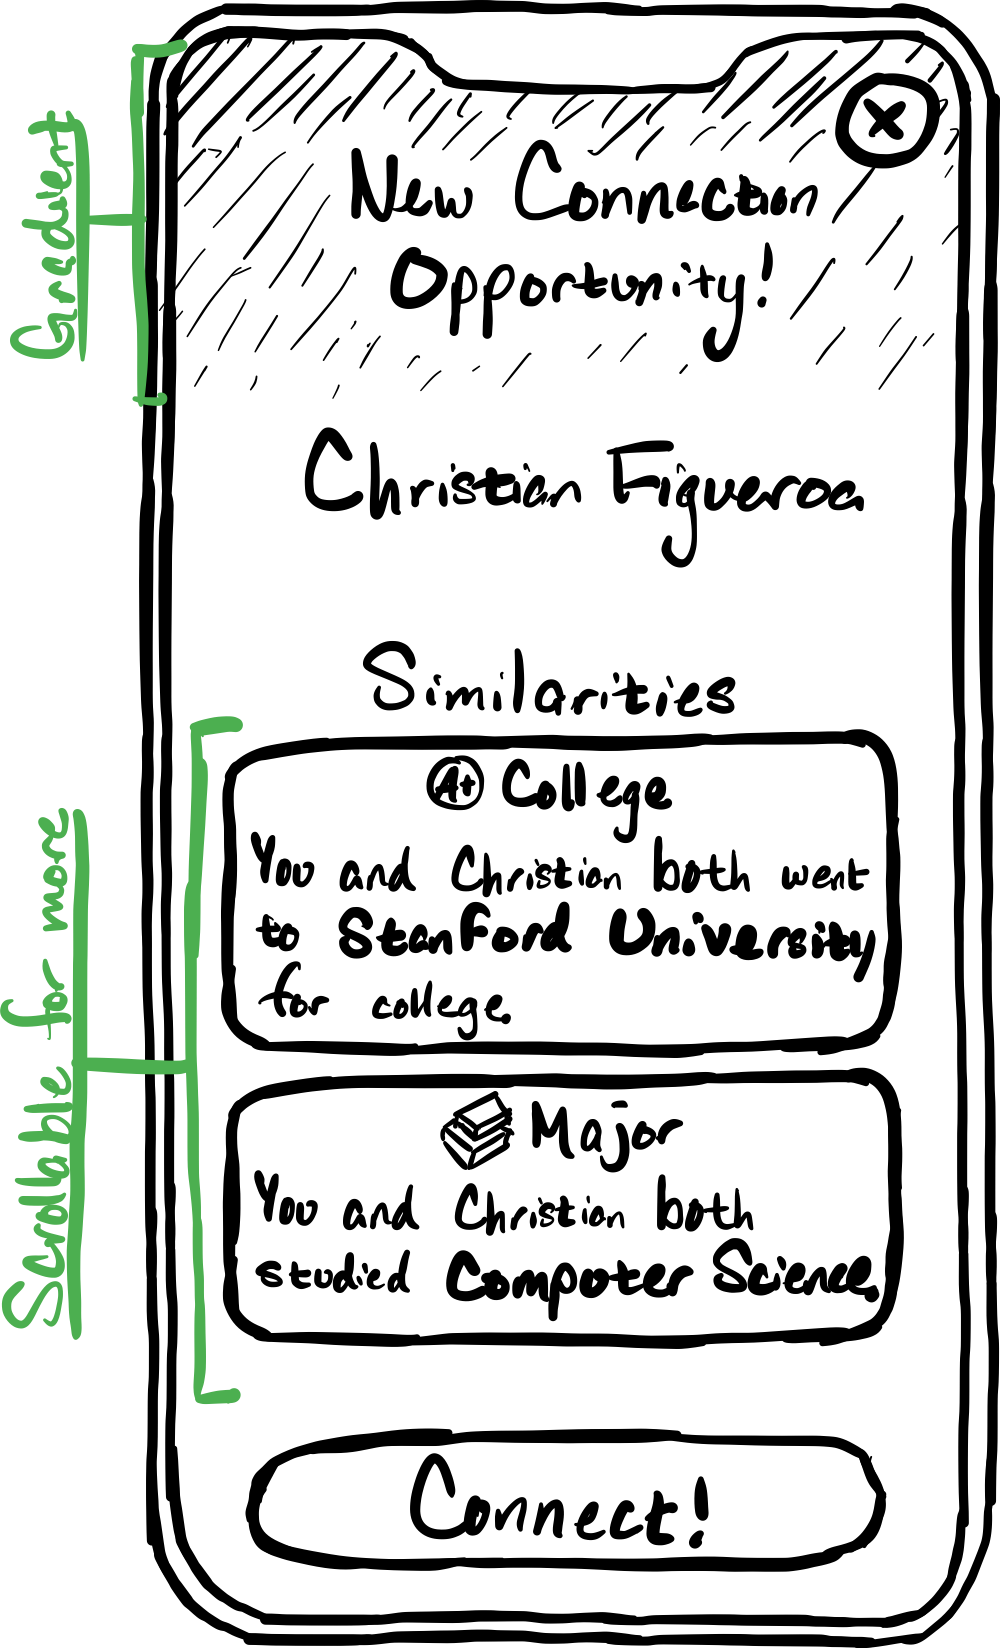 Gradient
New Connection
Opportunity!
Christian Figueroa
Similarities
Scrollable for more
A+ College
You and Christian both went
to Stanford University
for college.
Major
You and Christian both
studied Computer Science.
Connect!